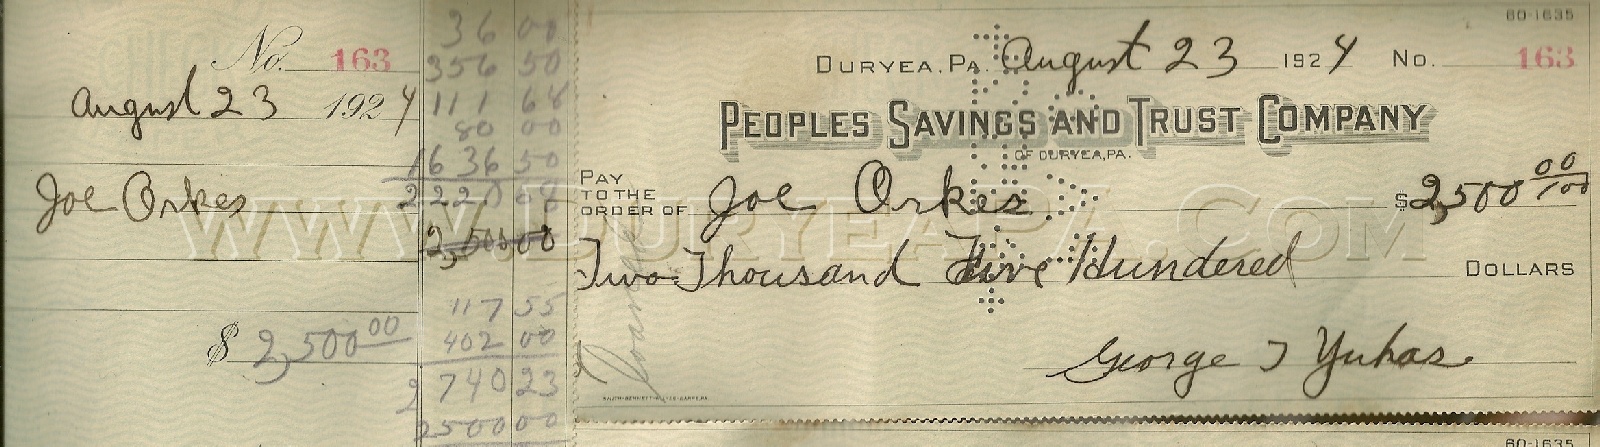 No. 163
August 23 1924
Joe Orkes
$ 2,500 00
36 00
356 50
111 68
80 00
1636 50
2220 08
2,500 00
117 55
402 00
2740 23
2500 00
60-1635
DURYEA, PA. August 23 1924 No. 163
PEOPLES SAVINGS AND TRUST COMPANY
OF DURYEA, PA.
PAY TO THE ORDER OF Joe Orkes $2,500 00/100
Two Thousand Five Hundered DOLLARS
George J Yuhas
WWW.DURYEAPA.COM
60-1635